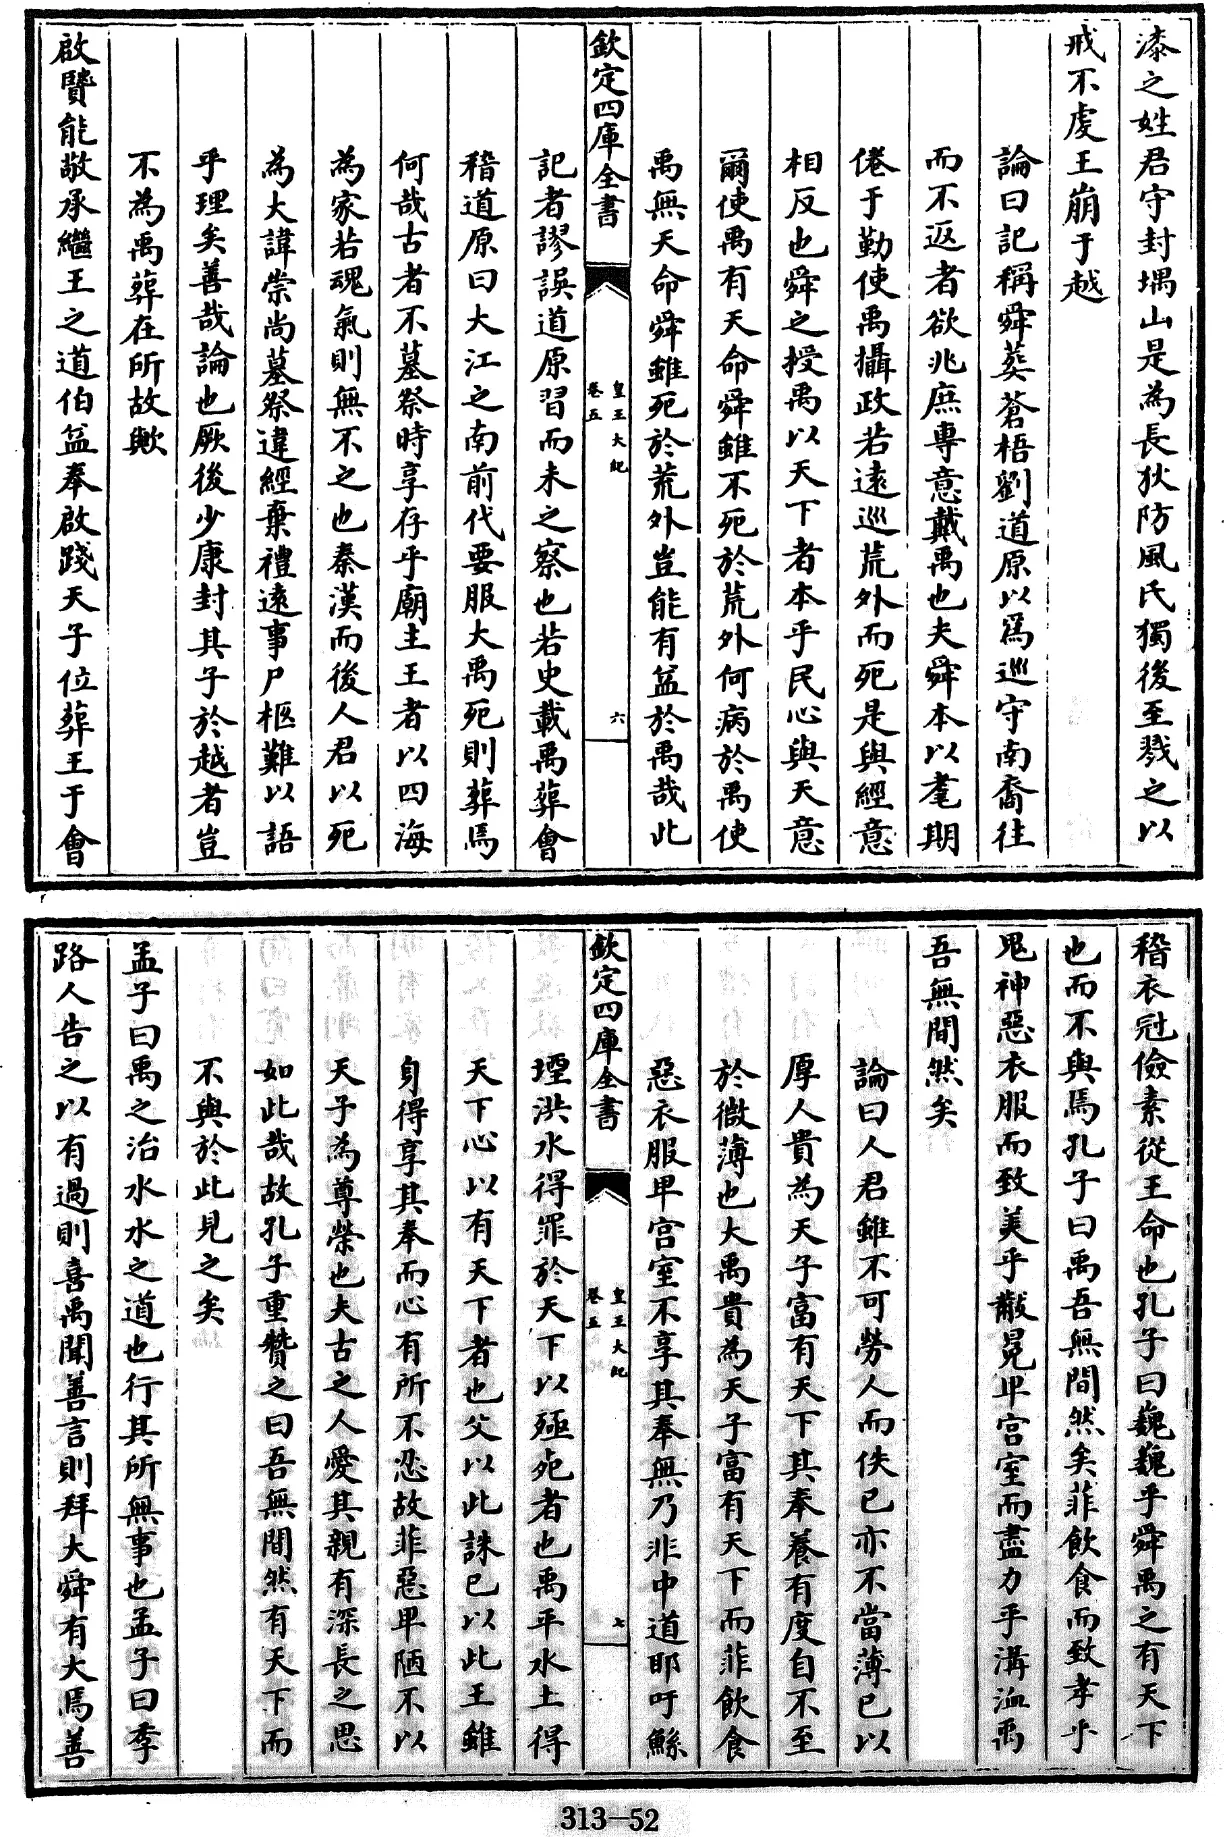 漆之姓君守封堣山是為長狄防風氏獨後至戮之以
戒不虔王崩于越
論曰記稱舜葬蒼梧劉道原以為巡守南裔往
而不返者欲兆庶專意戴禹也夫舜本以耄期
倦于勤使禹攝政若遠巡荒外而死是與經意
相反也舜之授禹以天下者本乎民心與天意
爾使禹有天命舜雖不死於荒外何病於禹使
禹無天命舜雖死於荒外豈能有益於禹哉此
欽定四庫全書
皇王大紀
卷五
六
記者謬誤道原習而未之察也若史載禹葬會
稽道原曰大江之南前代要服大禹死則葬焉
何哉古者不墓祭時享存乎廟主王者以四海
為家若魂氣則無不之也秦漢而後人君以死
為大諱崇尚墓祭違經棄禮遠事尸柩難以語
乎理矣善哉論也厥後少康封其子於越者豈
不為禹葬在所故歟
啟賢能敬承繼王之道伯益奉啟踐天子位葬王于會
稽衣冠儉素從王命也孔子曰巍巍乎舜禹之有天下
也而不與焉孔子曰禹吾無間然矣菲飲食而致孝乎
鬼神惡衣服而致美乎黻冕卑宫室而盡力乎溝洫禹
吾無間然矣
論曰人君雖不可勞人而佚已亦不當薄已以
厚人貴為天子富有天下其奉養有度自不至
於微薄也大禹貴為天子富有天下而菲飲食
惡衣服卑宫室不享其奉無乃非中道耶吁鯀
欽定四庫全書
皇王大紀
卷五
七
堙洪水得罪於天下以殛死者也禹平水土得
天下心以有天下者也父以此誅已以此王雖
身得享其奉而心有所不忍故菲惡卑陋不以
天子為尊榮也夫古之人愛其親有深長之思
如此哉故孔子重贊之曰吾無間然有天下而
不與於此見之矣
孟子曰禹之治水水之道也行其所無事也孟子曰季
路人告之以有過則喜禹聞善言則拜大舜有大焉善
313—52